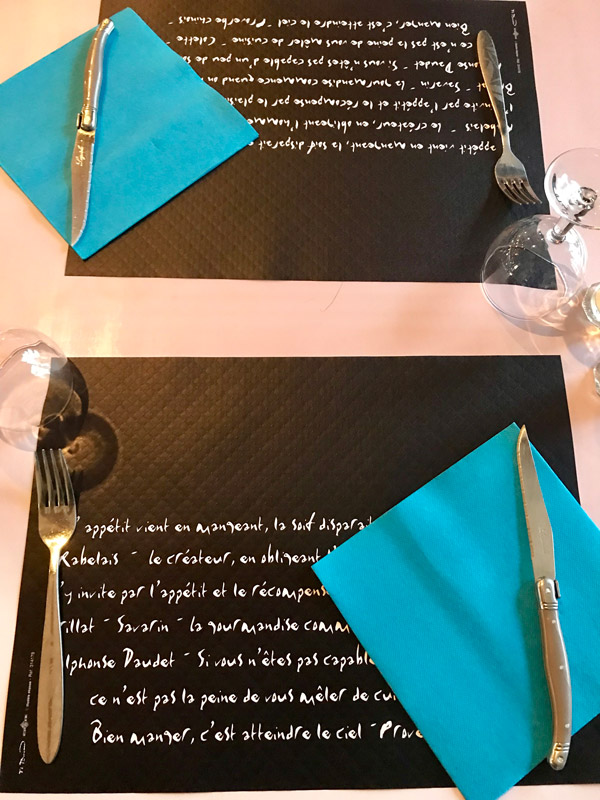 Bien manger, c'est atteindre le ciel - Proverbe chinois -
ce n'est pas la peine de vous mêler de cuisine - Colette -
Daudet - Si vous n'êtes pas capables d'un peu de
Savarin - la gourmandise commence quand on
invite par l'appétit et le récompense par le plaisir
le créateur, en obligeant
appétit vient en mangeant, la soif disparait
appétit vient en mangeant, la soif disparait
Rabelais - le créateur, en obligeant
y invite par l'appétit et le
Savarin - la gourmandise
Alphonse Daudet - Si vous n'êtes pas
ce n'est pas la peine de vous mêler de
Bien manger, c'est atteindre le ciel -